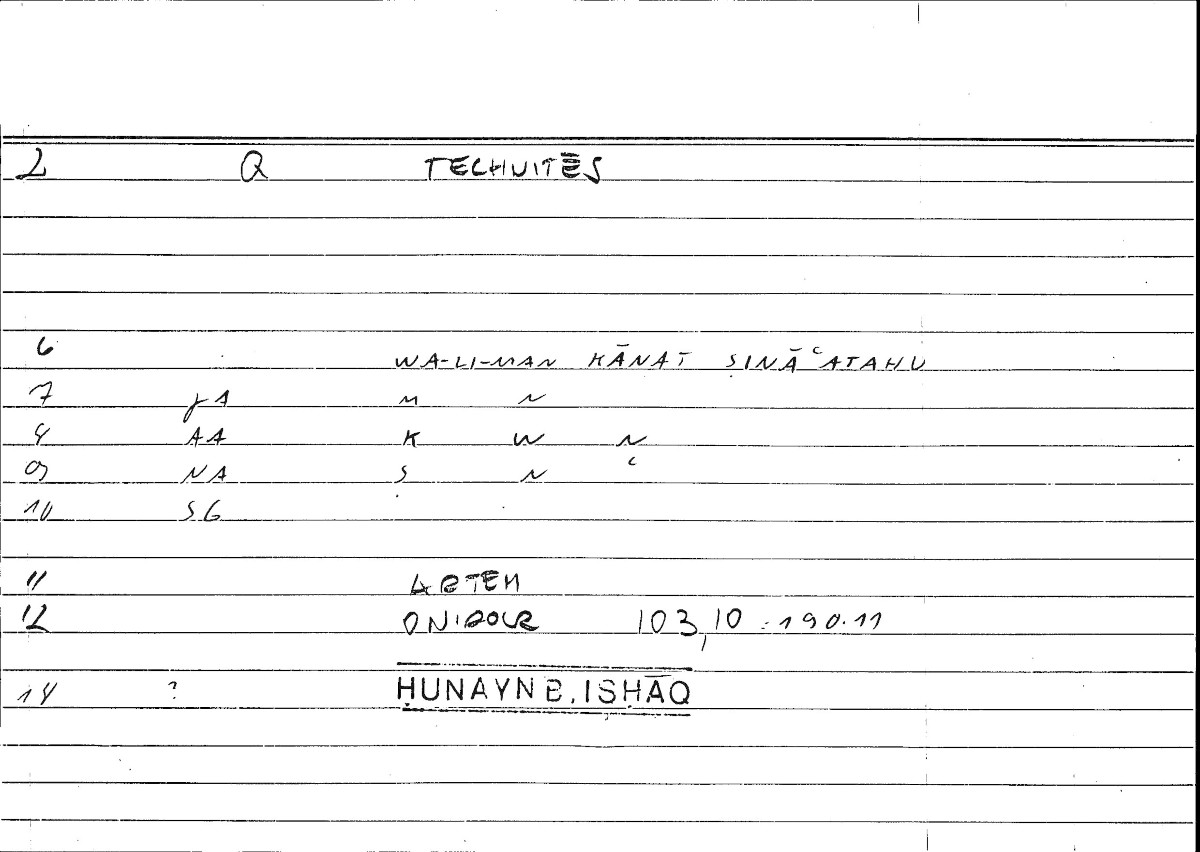 2 Q TECHNITĒS
6 WA-LI-MAN KĀNAT ṢINĀʿATAHU
7 JA M N
8 AA K W N
9 NA Ṣ N ʿ
10 SG
11 ARTEM
12 ONIROCR 103,10 : 190.11
14 ? ḤUNAYN B. ISḤĀQ